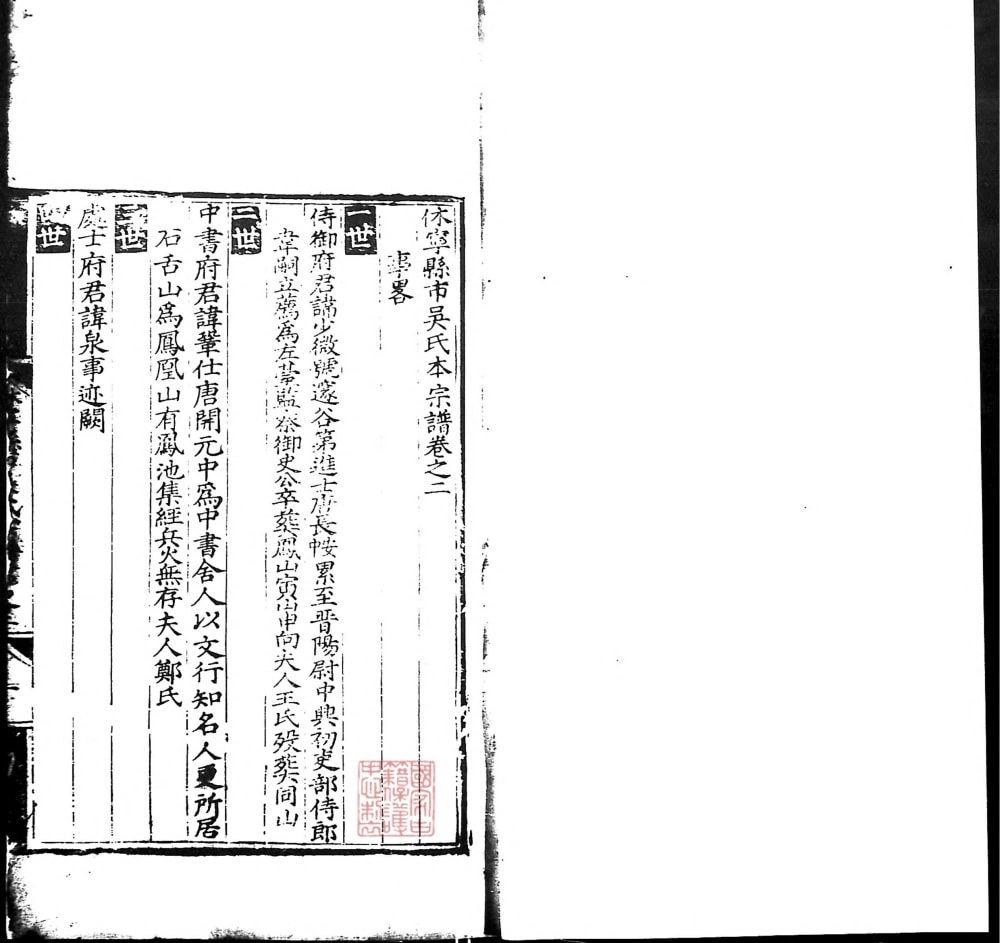 休寧縣市吳氏本宗譜卷之二
事畧
一世
侍御府君諱少微號邃谷第進士唐長安累至晉陽尉中興初吏部侍郎
韋嗣立薦為左臺監察御史公卒葬鳳山寅山申向夫人王氏歿葬同山
二世
中書府君諱鞏仕唐開元中爲中書舍人以文行知名人更所居
石舌山爲鳳凰山有鳳池集經兵火無存夫人鄭氏
三世
處士府君諱泉事迹闕
四世